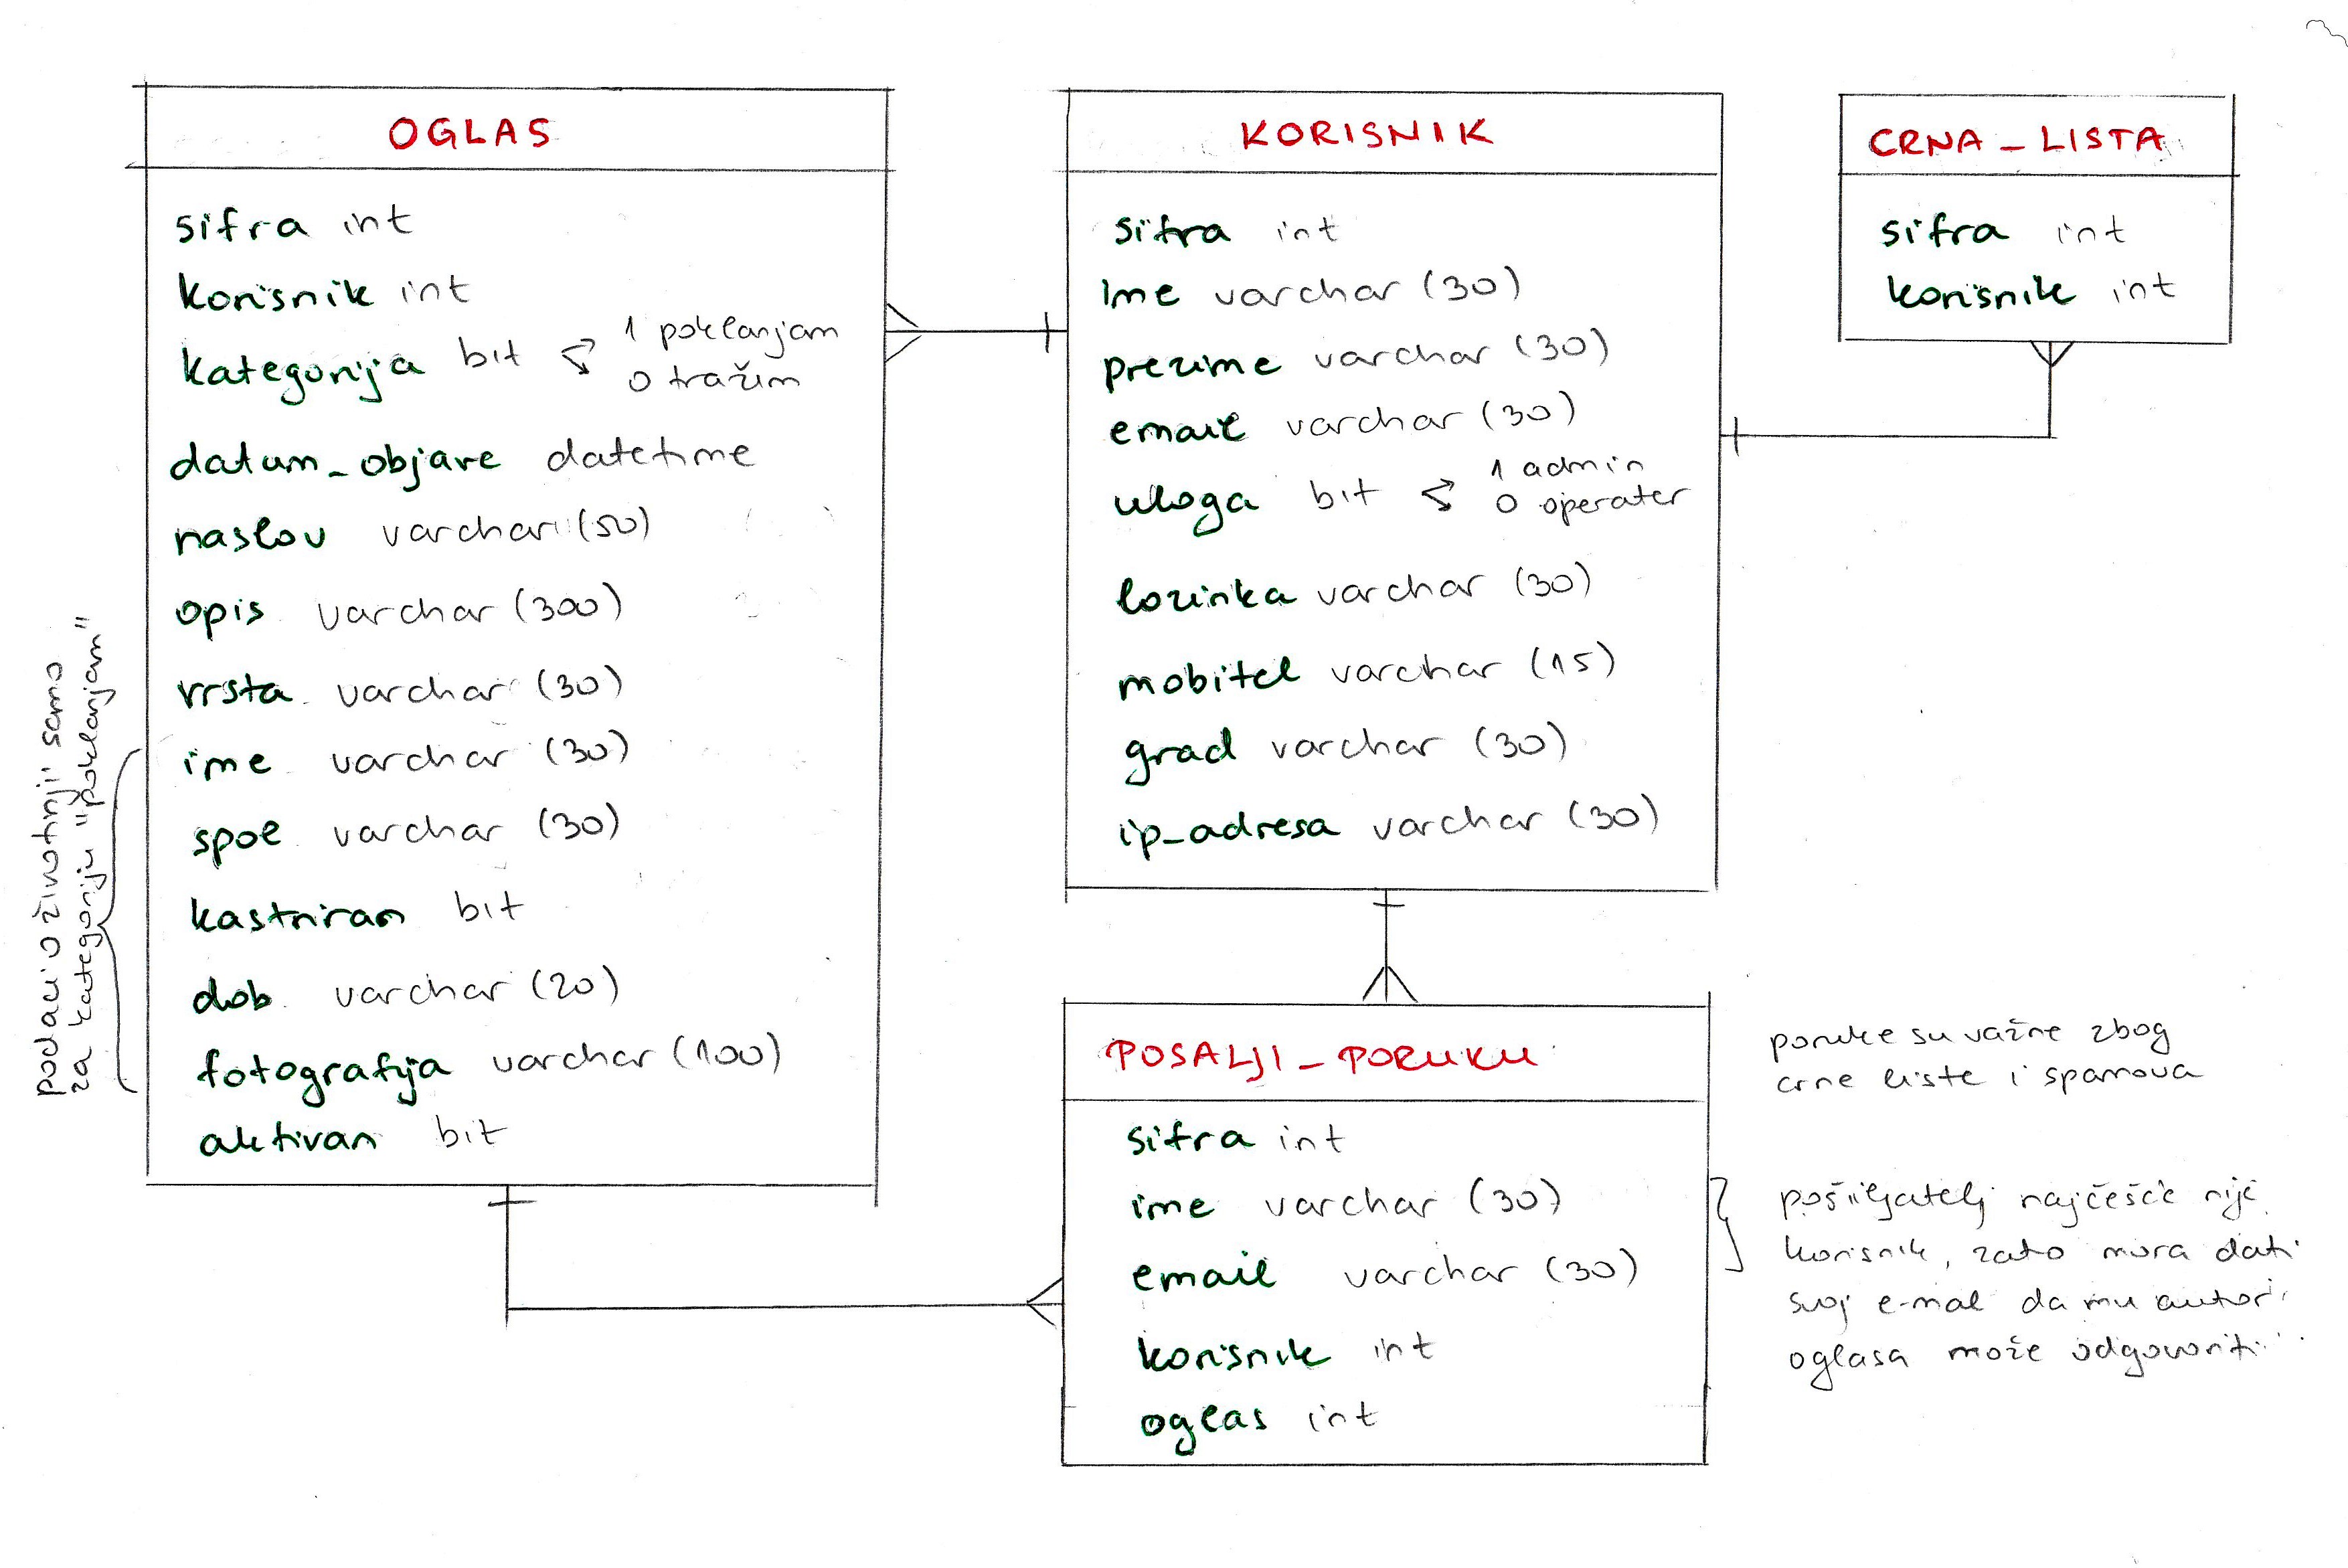 OGLAS
sifra int
korisnik int
kategorija bit 1 poklanjam
0 tražim
datum_objave datetime
naslov varchar (50)
opis varchar (300)
vrsta varchar (30)
ime varchar (30)
spol varchar (30)
kastriran bit
dob varchar (20)
fotografija varchar (100)
aktivan bit
podaci o životinji samo
za kategoriju "poklanjam"
KORISNIK
sifra int
ime varchar (30)
prezime varchar (30)
email varchar (30)
uloga bit 1 admin
0 operater
lozinka varchar (30)
mobitel varchar (15)
grad varchar (30)
ip_adresa varchar (30)
CRNA_LISTA
sifra int
korisnik int
POSALJI_PORUKU
sifra int
ime varchar (30)
email varchar (30)
korisnik int
oglas int
poruke su važne zbog
crne liste i spamova
pošiljatelj najčešće nije
korisnik, zato mora dati
svoj e-mail da mu autor
oglasa može odgovoriti